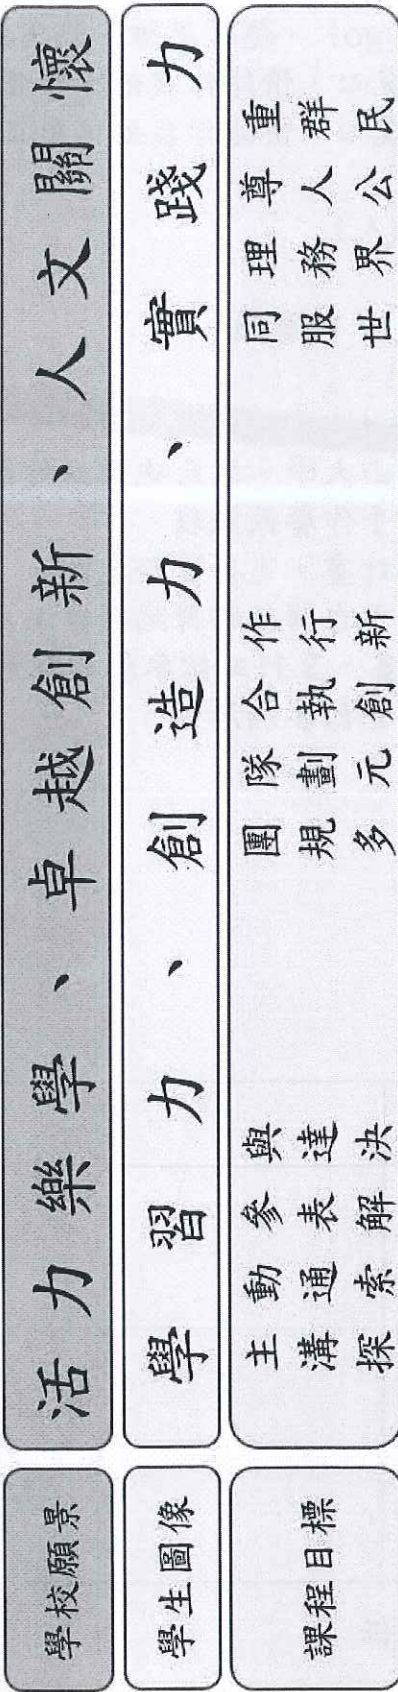 學校願景
活力樂學、卓越創新、人文關懷
學生圖像
學習力、創造力、實踐力
課程目標
主動參與
溝通表達
探索解決
團隊合作
規劃執行
多元創新
同理尊重
服務人群
世界公民